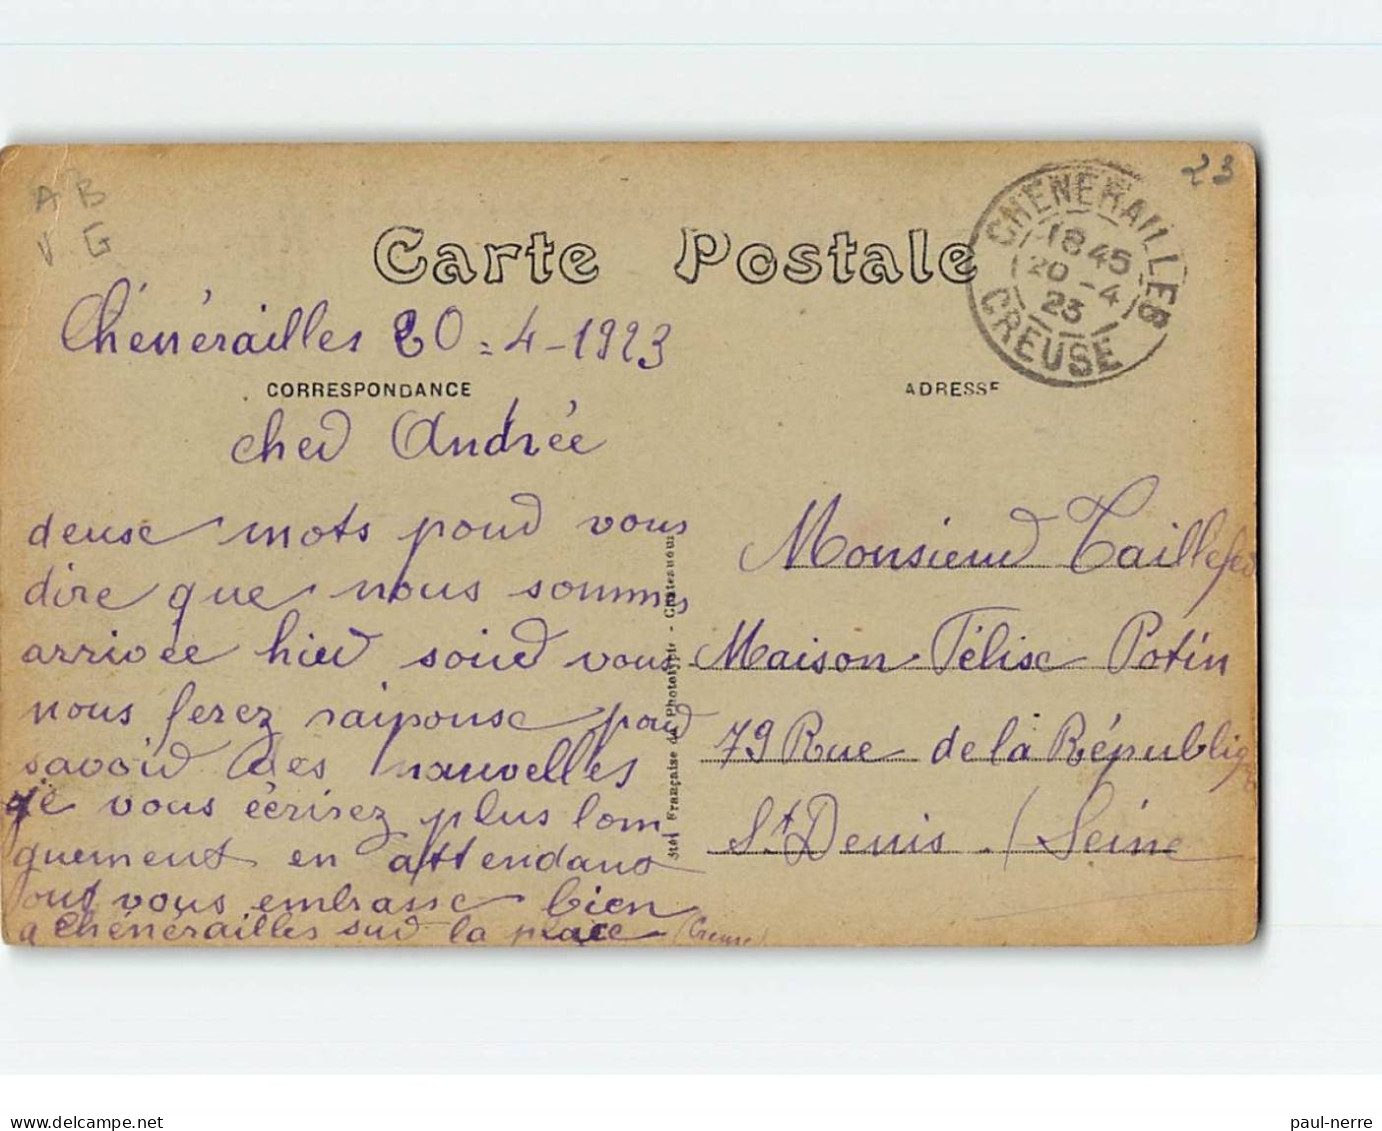 A B
V. G
23
Carte Postale
CHENERAILLES
18 45
20 -4
23
CREUSE
Chénérailles 20 = 4 - 1923
CORRESPONDANCE
ADRESSE
cher Andrée
deuse mots pour vous
dire que nous sommes
arrivée hier soir vous
nous ferez raiponse pour
savoir des nauvelles
je vous écrirez plus lom
guement en attendans
vous embrasse bien
a Chénérailles sur la place (Creuse)
Sté Française de Phototypie - Chateauroux
Monsieur Taillefer
Maison Félise Potin
79 Rue de la Républiq
St Denis / Seine
delcampe.net
paul-nerre